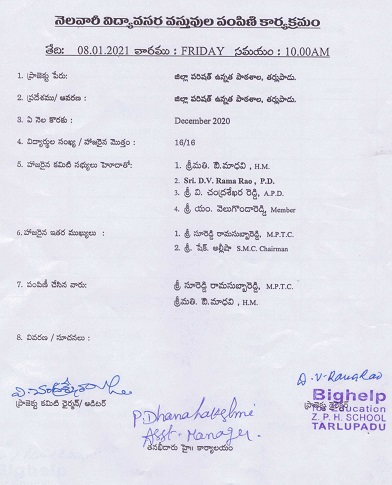 నెలవారీ విద్యావసర వస్తువుల పంపిణి కార్యక్రమం
తేది: 08.01.2021 వారము : FRIDAY సమయం : 10.00AM
1. ప్రాజెక్టు పేరు: జిల్లా పరిషత్ ఉన్నత పాఠశాల, తర్లుపాడు.
2. ప్రదేశము/ ఆవరణ : జిల్లా పరిషత్ ఉన్నత పాఠశాల, తర్లుపాడు.
3. ఏ నెల కొరకు: December 2020
4. విద్యార్థుల సంఖ్య / హాజరైన మొత్తం: 16/16
5. హాజరైన కమిటి సభ్యులు హెూదాతో: 1. శ్రీమతి. పి.మాధవి , H.M.
2. Sri. D.V. Rama Rao , P.D.
3. శ్రీ వి. చంద్రశేఖర రెడ్డి, A.P.D.
4. శ్రీ యం. వెలుగొండారెడ్డి, Member
6.హాజరైన ఇతర ముఖ్యులు : 1. శ్రీ సూరెడ్డి రామసుబ్బారెడ్డి, M.P.T.C.
2. శ్రీ. షేక్. అల్లీషా S.M.C. Chairman
7. పంపిణీ చేసిన వారు: శ్రీ సూరెడ్డి రామసుబ్బారెడ్డి, M.P.T.C.
శ్రీమతి. పి.మాధవి , H.M.
8. వివరణ / సూచనలు :
D.V. Rama Rao
ప్రాజెక్టు కమిటి ఛైర్మన్/ ఆడిటర్
Bighelp
Education
Z. P. H. SCHOOL
TARLUPADU
P. Dhanalakshmi
Asst. Manager.
తనిఖీదారు హై॥ కార్యాలయం